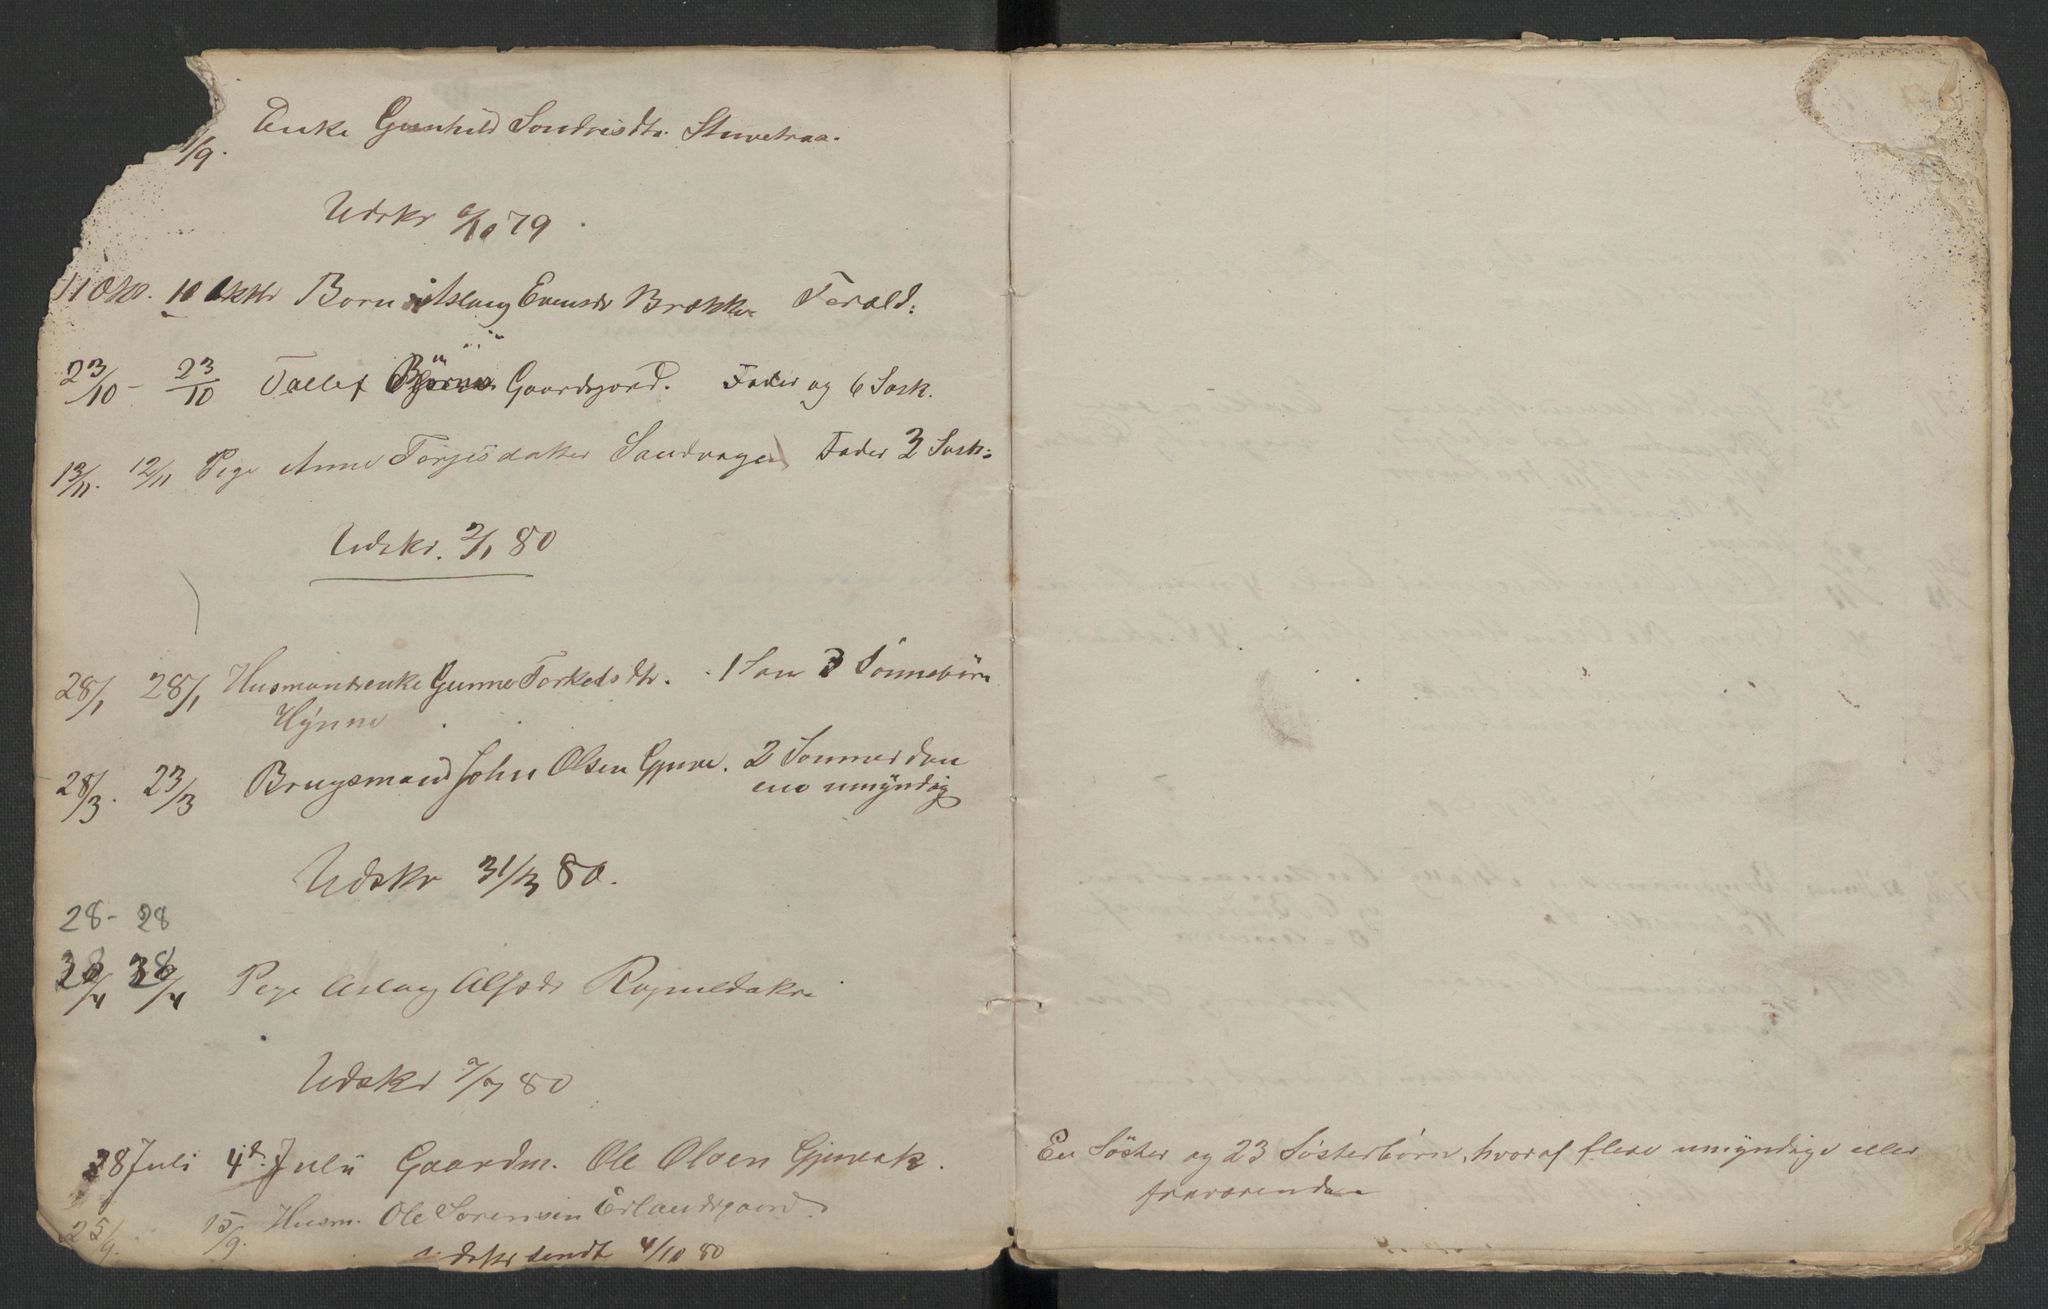 1/9. Enke Gunhild Sondresdtr. Stuvetraa.
Udskr 6/10 79.
11 Okt. 10 Oktbr Barn Aslaug Evensdr Brække Foræld:
23/10 - 23/10 Tallef Björns. Gaardsjord. Fader og 6 Sosk.
13/11. 12/11 Pige Anne Torjusdatter Sandvagen Fader 3 Sosk:
Udskr. 2/1 80
28/1 28/1 Husmandsenke Gunne Torkelsdtr. 1 Son 3 Sönnebörn
Hynne
28/3. 23/3 Brugsmand John Olsen Gjuve. 2 Sonner den
ene umyndig
Udskr 31/3 80.
28- 28
28/4 28/4 Pige Aslaug Alfsdr
Udskr 7/7 80
28 Juli 4d. Juli Gaardm. Ole Olsen Gjuvak.
25/9. 15/9. Husm. Ole Sorensen Erlandsgaard.
udskr sendt 4/10 80
En Söster og 23 Sösterbörn, hvoraf flere umyndige eller
fraværende